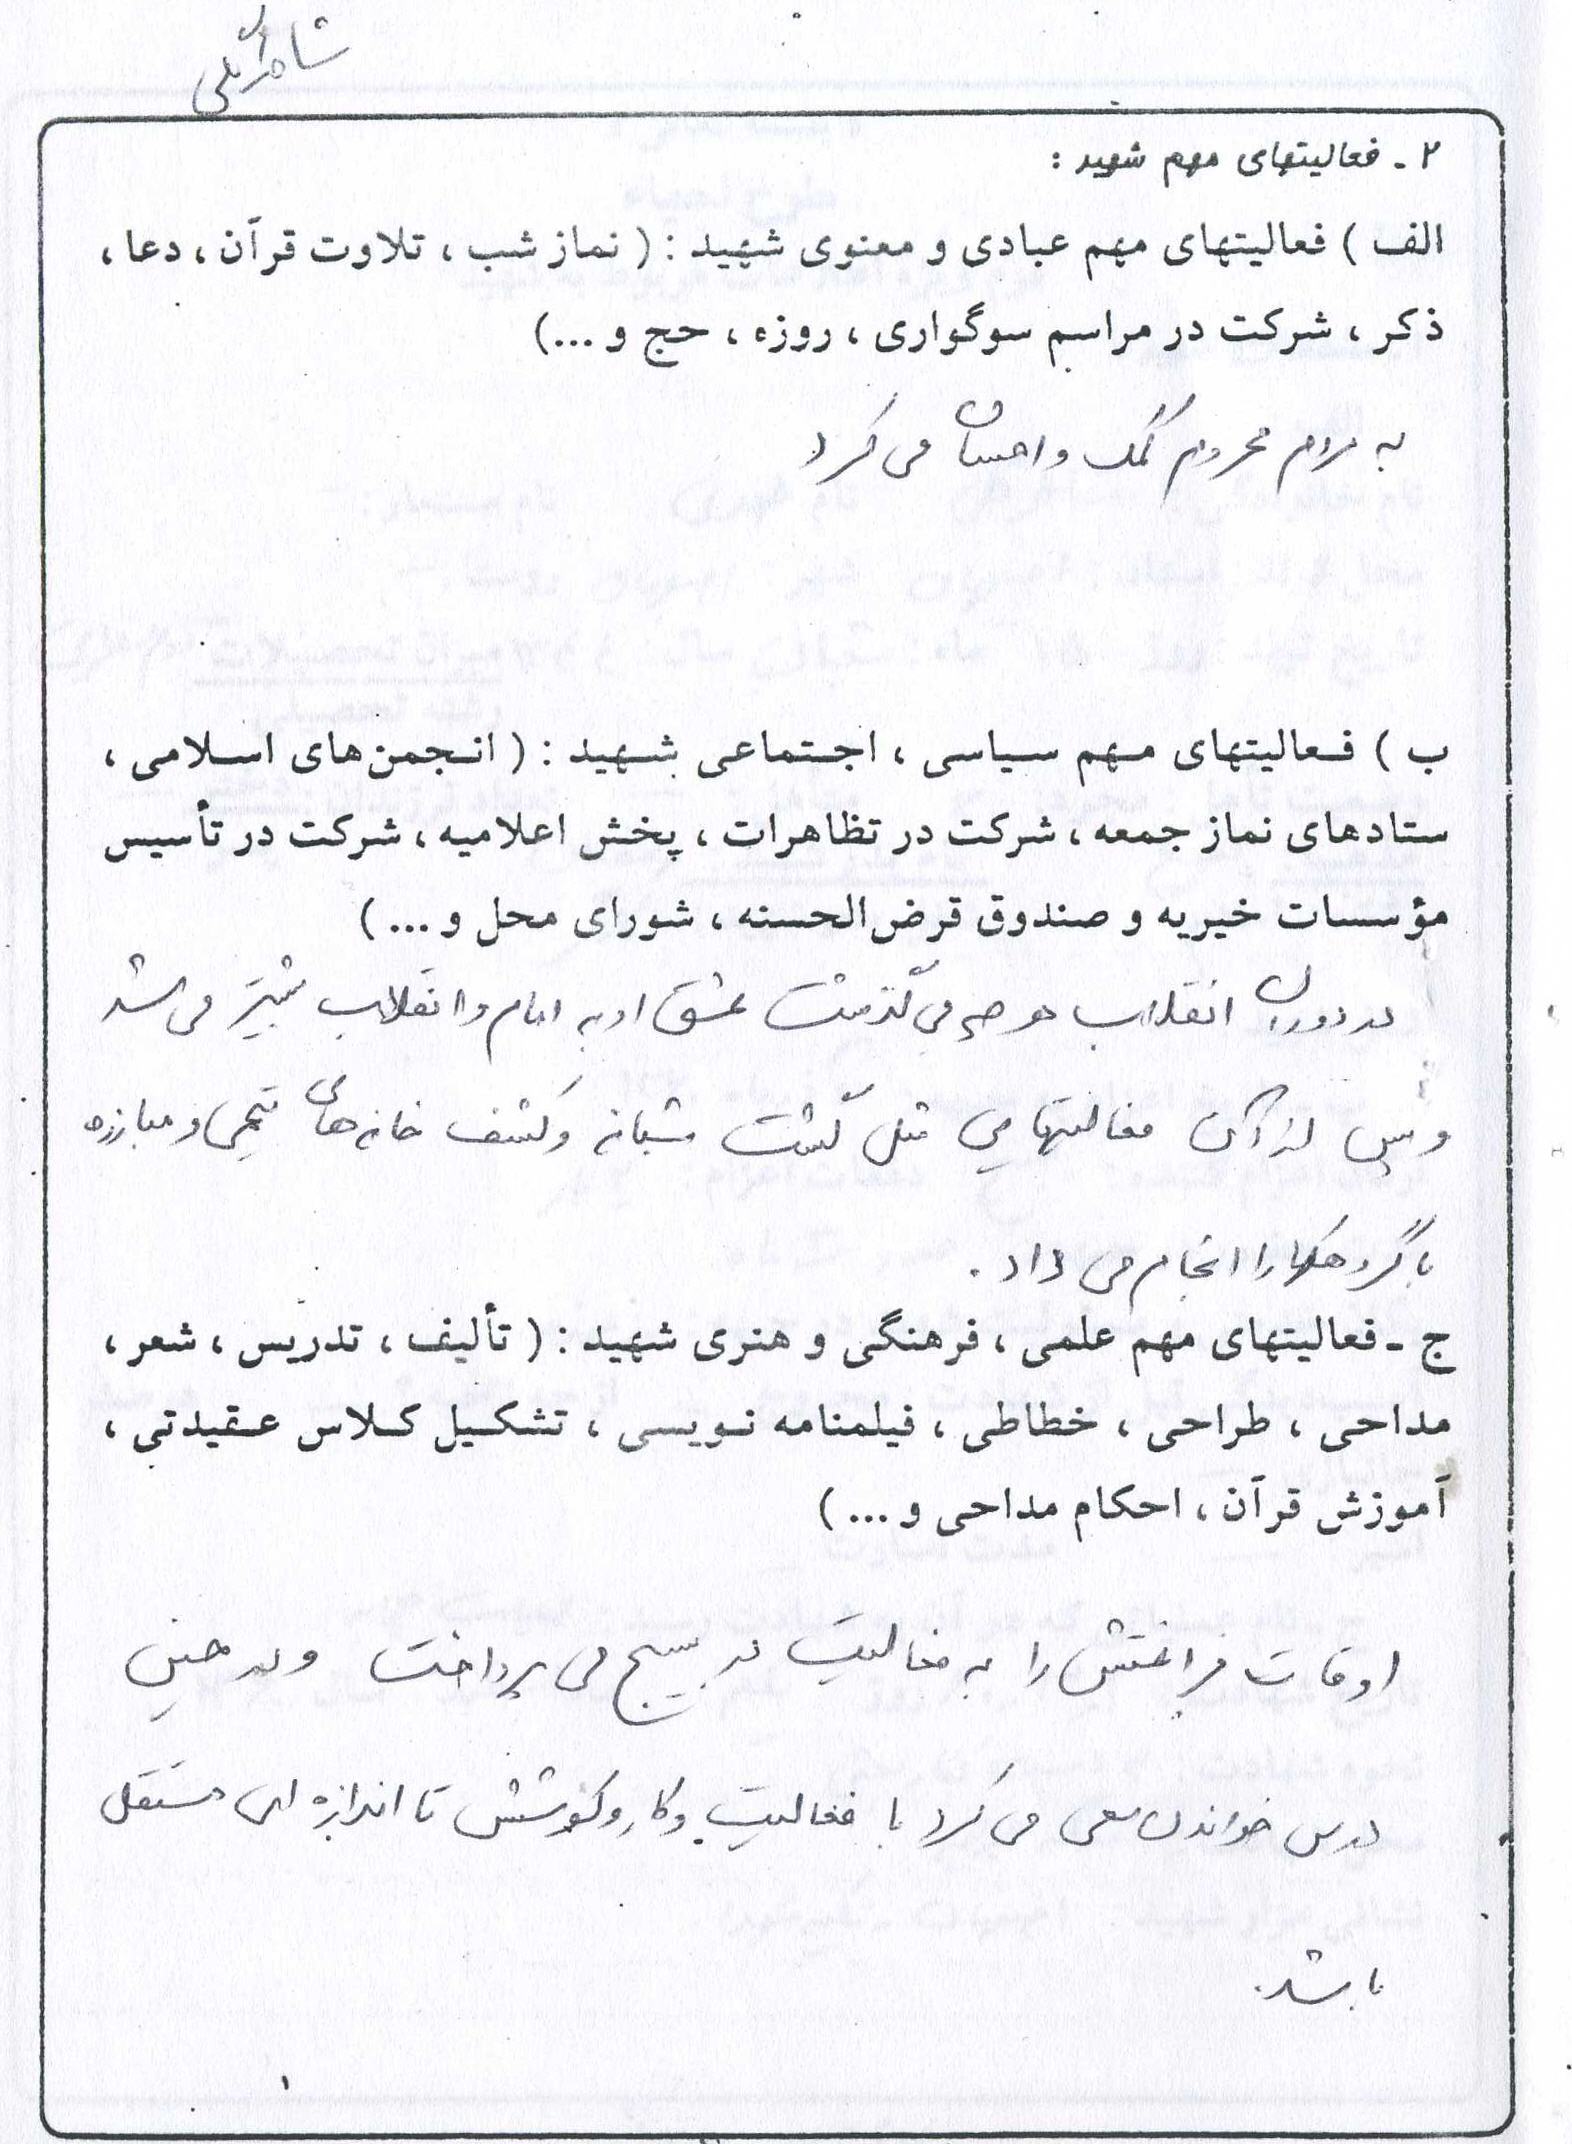 ۲ - فعالیتهای مهم شهید :
الف ) فعالیتهای مهم عبادی و معنوی شهید : ( نماز شب ، تلاوت قرآن ، دعا ،
ذکر ، شرکت در مراسم سوگواری ، روزه ، حج و ...)
به مردم محروم کمک و احسان می کرد
ب ) فعالیتهای مهم سیاسی ، اجتماعی شهید : ( انجمن‌های اسلامی ،
ستادهای نماز جمعه ، شرکت در تظاهرات ، پخش اعلامیه ، شرکت در تأسیس
مؤسسات خیریه و صندوق قرض‌الحسنه ، شورای محل و ... )
در دوران انقلاب هر چه می گذشت عشق او به امام و انقلاب بیشتر می شد
و پس از آن فعالیتهایی مثل گشت شبانه و کشف خانه های تیمی و مبارزه
با گروهکها را انجام می داد .
ج - فعالیتهای مهم علمی ، فرهنگی و هنری شهید : ( تألیف ، تدریس ، شعر ،
مداحی ، طراحی ، خطاطی ، فیلمنامه نویسی ، تشکیل کلاس عقیدتی ،
آموزش قرآن ، احکام مداحی و ... )
اوقات فراغتش را به فعالیت در بسیج می پرداخت و در حین
درس خواندن سعی می کرد با فعالیت و کار و کوشش تا اندازه ای مستقل
باشد.